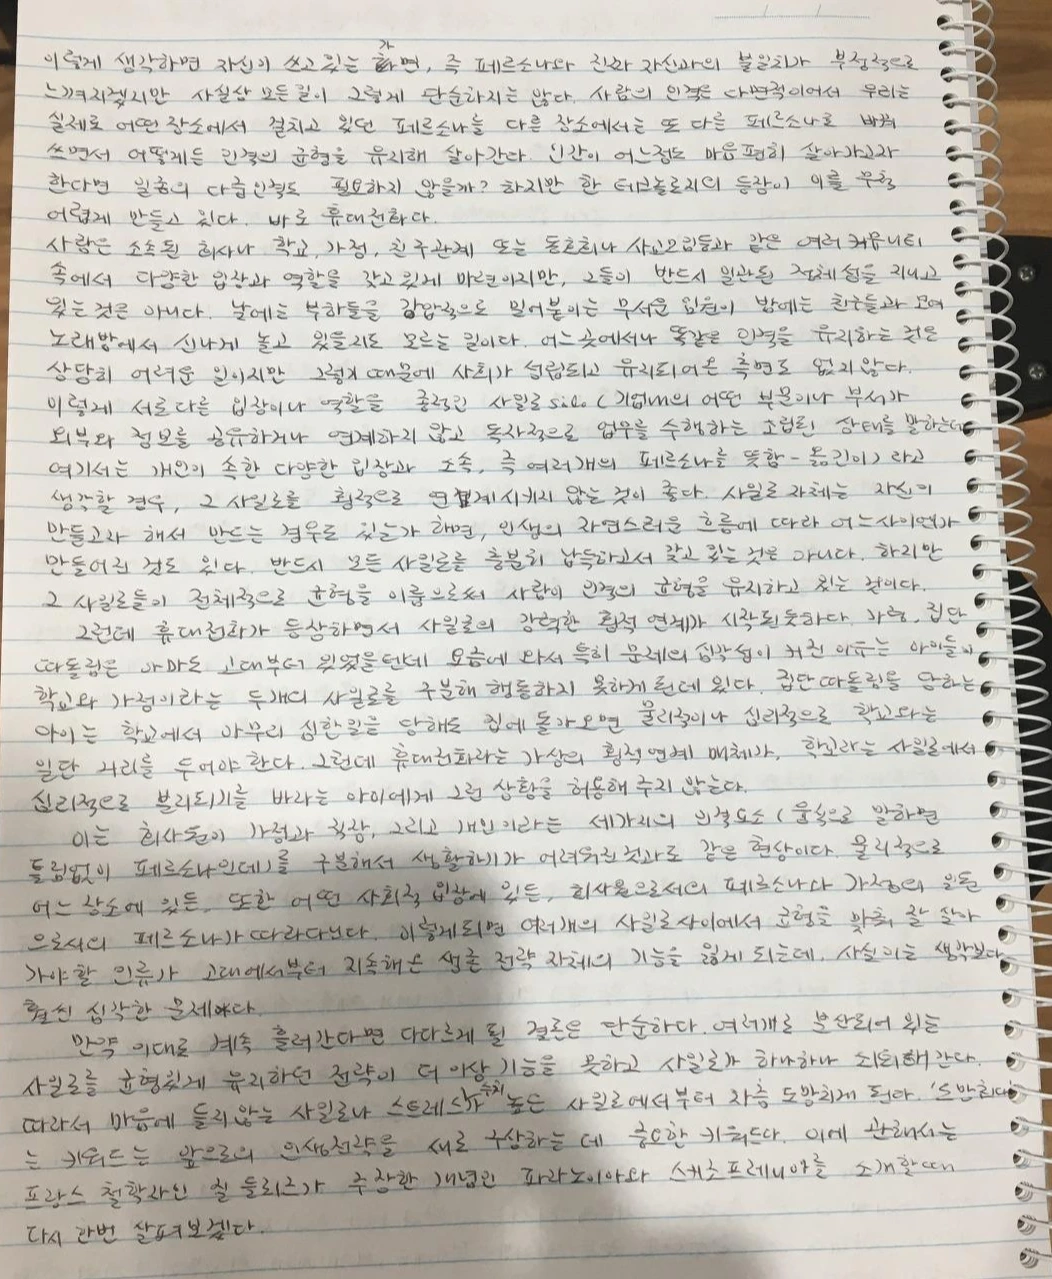 이렇게 생각하면 자신이 쓰고 있는 가면, 즉 페르소나와 진짜 자신과의 불일치가 부정적으로
느껴지겠지만 사실상 모든 일이 그렇게 단순하지는 않다. 사람의 인격은 다면적이어서 우리는
실제로 어떤 장소에서 걸치고 있던 페르소나를 다른 장소에서는 또 다른 페르소나로 바꿔
쓰면서 어떻게든 인격의 균형을 유지해 살아간다. 인간이 어느정도 마음 편히 살아가고자
한다면 일종의 다중인격도 필요하지 않을까? 하지만 한 테크놀로지의 등장이 이를 무척
어렵게 만들고 있다. 바로 휴대전화다.
사람은 소속된 회사나 학교, 가정, 친구관계 또는 동호회나 사교모임들과 같은 여러 커뮤니티
속에서 다양한 입장과 역할을 갖고 있게 마련이지만, 그들이 반드시 일관된 전체성을 지니고
있는 것은 아니다. 낮에는 부하들을 강압적으로 밀어붙이는 무서운 임원이 밤에는 친구들과 모여
노래방에서 신나게 놀고 있을지도 모르는 일이다. 어느 곳에서나 똑같은 인격을 유지하는 것은
상당히 어려운 일이지만 그렇기 때문에 사회가 성립되고 유지되어온 측면도 없지 않다.
이렇게 서로 다른 입장이나 역할을 종적인 사일로silo (기업內의 어떤 부문이나 부서가
외부와 정보를 공유하거나 연계하지 않고 독자적으로 업무를 수행하는 고립된 상태를 말하는데
여기서는 개인이 속한 다양한 입장과 소속, 즉 여러개의 페르소나를 뜻함 - 옮긴이) 라고
생각할 경우, 그 사일로를 횡적으로 연계시키지 않는 것이 좋다. 사일로 자체는 자신이
만들고자 해서 만드는 경우도 있는가 하면, 인생의 자연스러운 흐름에 따라 어느사이엔가
만들어진 것도 있다. 반드시 모든 사일로를 충분히 납득하고서 갖고 있는 것은 아니다. 하지만
그 사일로들이 전체적으로 균형을 이룸으로써 사람이 인격의 균형을 유지하고 있는 것이다.
그런데 휴대전화가 등장하면서 사일로의 강력한 횡적 연계가 시작된듯하다. 가령, 집단
따돌림은 아마도 고대부터 있었을텐데 요즘에 와서 특히 문제의 심각성이 커진 이유는 아이들이
학교와 가정이라는 두개의 사일로를 구분해 행동하지 못하게 된데 있다. 집단따돌림을 당하는
아이는 학교에서 아무리 심한일을 당해도 집에 돌아오면 물리적이나 심리적으로 학교와는
일단 거리를 두어야 한다. 그런데 휴대전화라는 가상의 횡적연계 매체가, 학교라는 사일로에서
심리적으로 분리되기를 바라는 아이에게 그런 상황을 허용해 주지 않는다.
이는 회사원이 가정과 직장, 그리고 개인이라는 세가지의 인격요소 (융식으로 말하면
틀림없이 페르소나인데)를 구분해서 생활하기가 어려워진것과도 같은 현상이다. 물리적으로
어느 장소에 있든, 또한 어떤 사회적 입장에 있든, 회사원으로서의 페르소나나 가정의 일원
으로서의 페르소나가 따라다닌다. 이렇게되면 여러개의 사일로 사이에서 균형을 맞춰 잘 살아
가야할 인류가 고대에서부터 지속해온 생존 전략 자체의 기능을 잃게 되는데, 사실 이는 생각보다
훨씬 심각한 문제다.
만약 이대로 계속 흘러간다면 다다르게 될 결론은 단순하다. 여러개로 분산되어 있는
사일로를 균형있게 유지하던 전략이 더 이상 기능을 못하고 사일로가 하나하나 와해해 간다.
따라서 마음에 들지 않는 사일로나 스트레스 수치가 높은 사일로에서부터 차츰 도망치게 된다. '도망친다'
는 키워드는 앞으로의 인생전략을 새로 구상하는 데 중요한 키워드다. 이에 관해서는
프랑스 철학자인 질 들뢰즈가 주장한 개념인 파라노이아와 스키조프레니아를 소개할때
다시 한번 살펴보겠다.